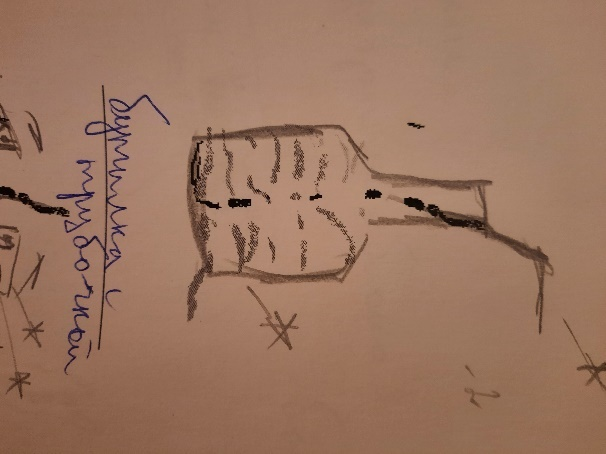 бутылка с
трубочкой